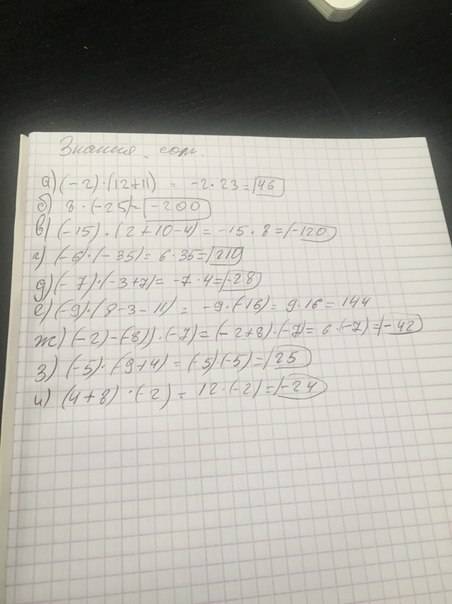 Знания. сом.
а) (-2)·(12+11) = -2·23=46
б) 8·(-25)=-200
в) (-15)·(2+10-4)=-15·8=-120
г) (-6)·(-35)=6·35=210
д) (-7)·(-3+7)=-7·4=-28
е) (-9)·(8-3-11) = -9·(-16)=9·16=144
ж) (-2)-(-8))·(-7)=(-2+8)·(-7)=6·(-7)=-42
з) (-5)·(-9+4)=(-5)(-5)=25
и) (4+8)·(-2) = 12·(-2)=-24